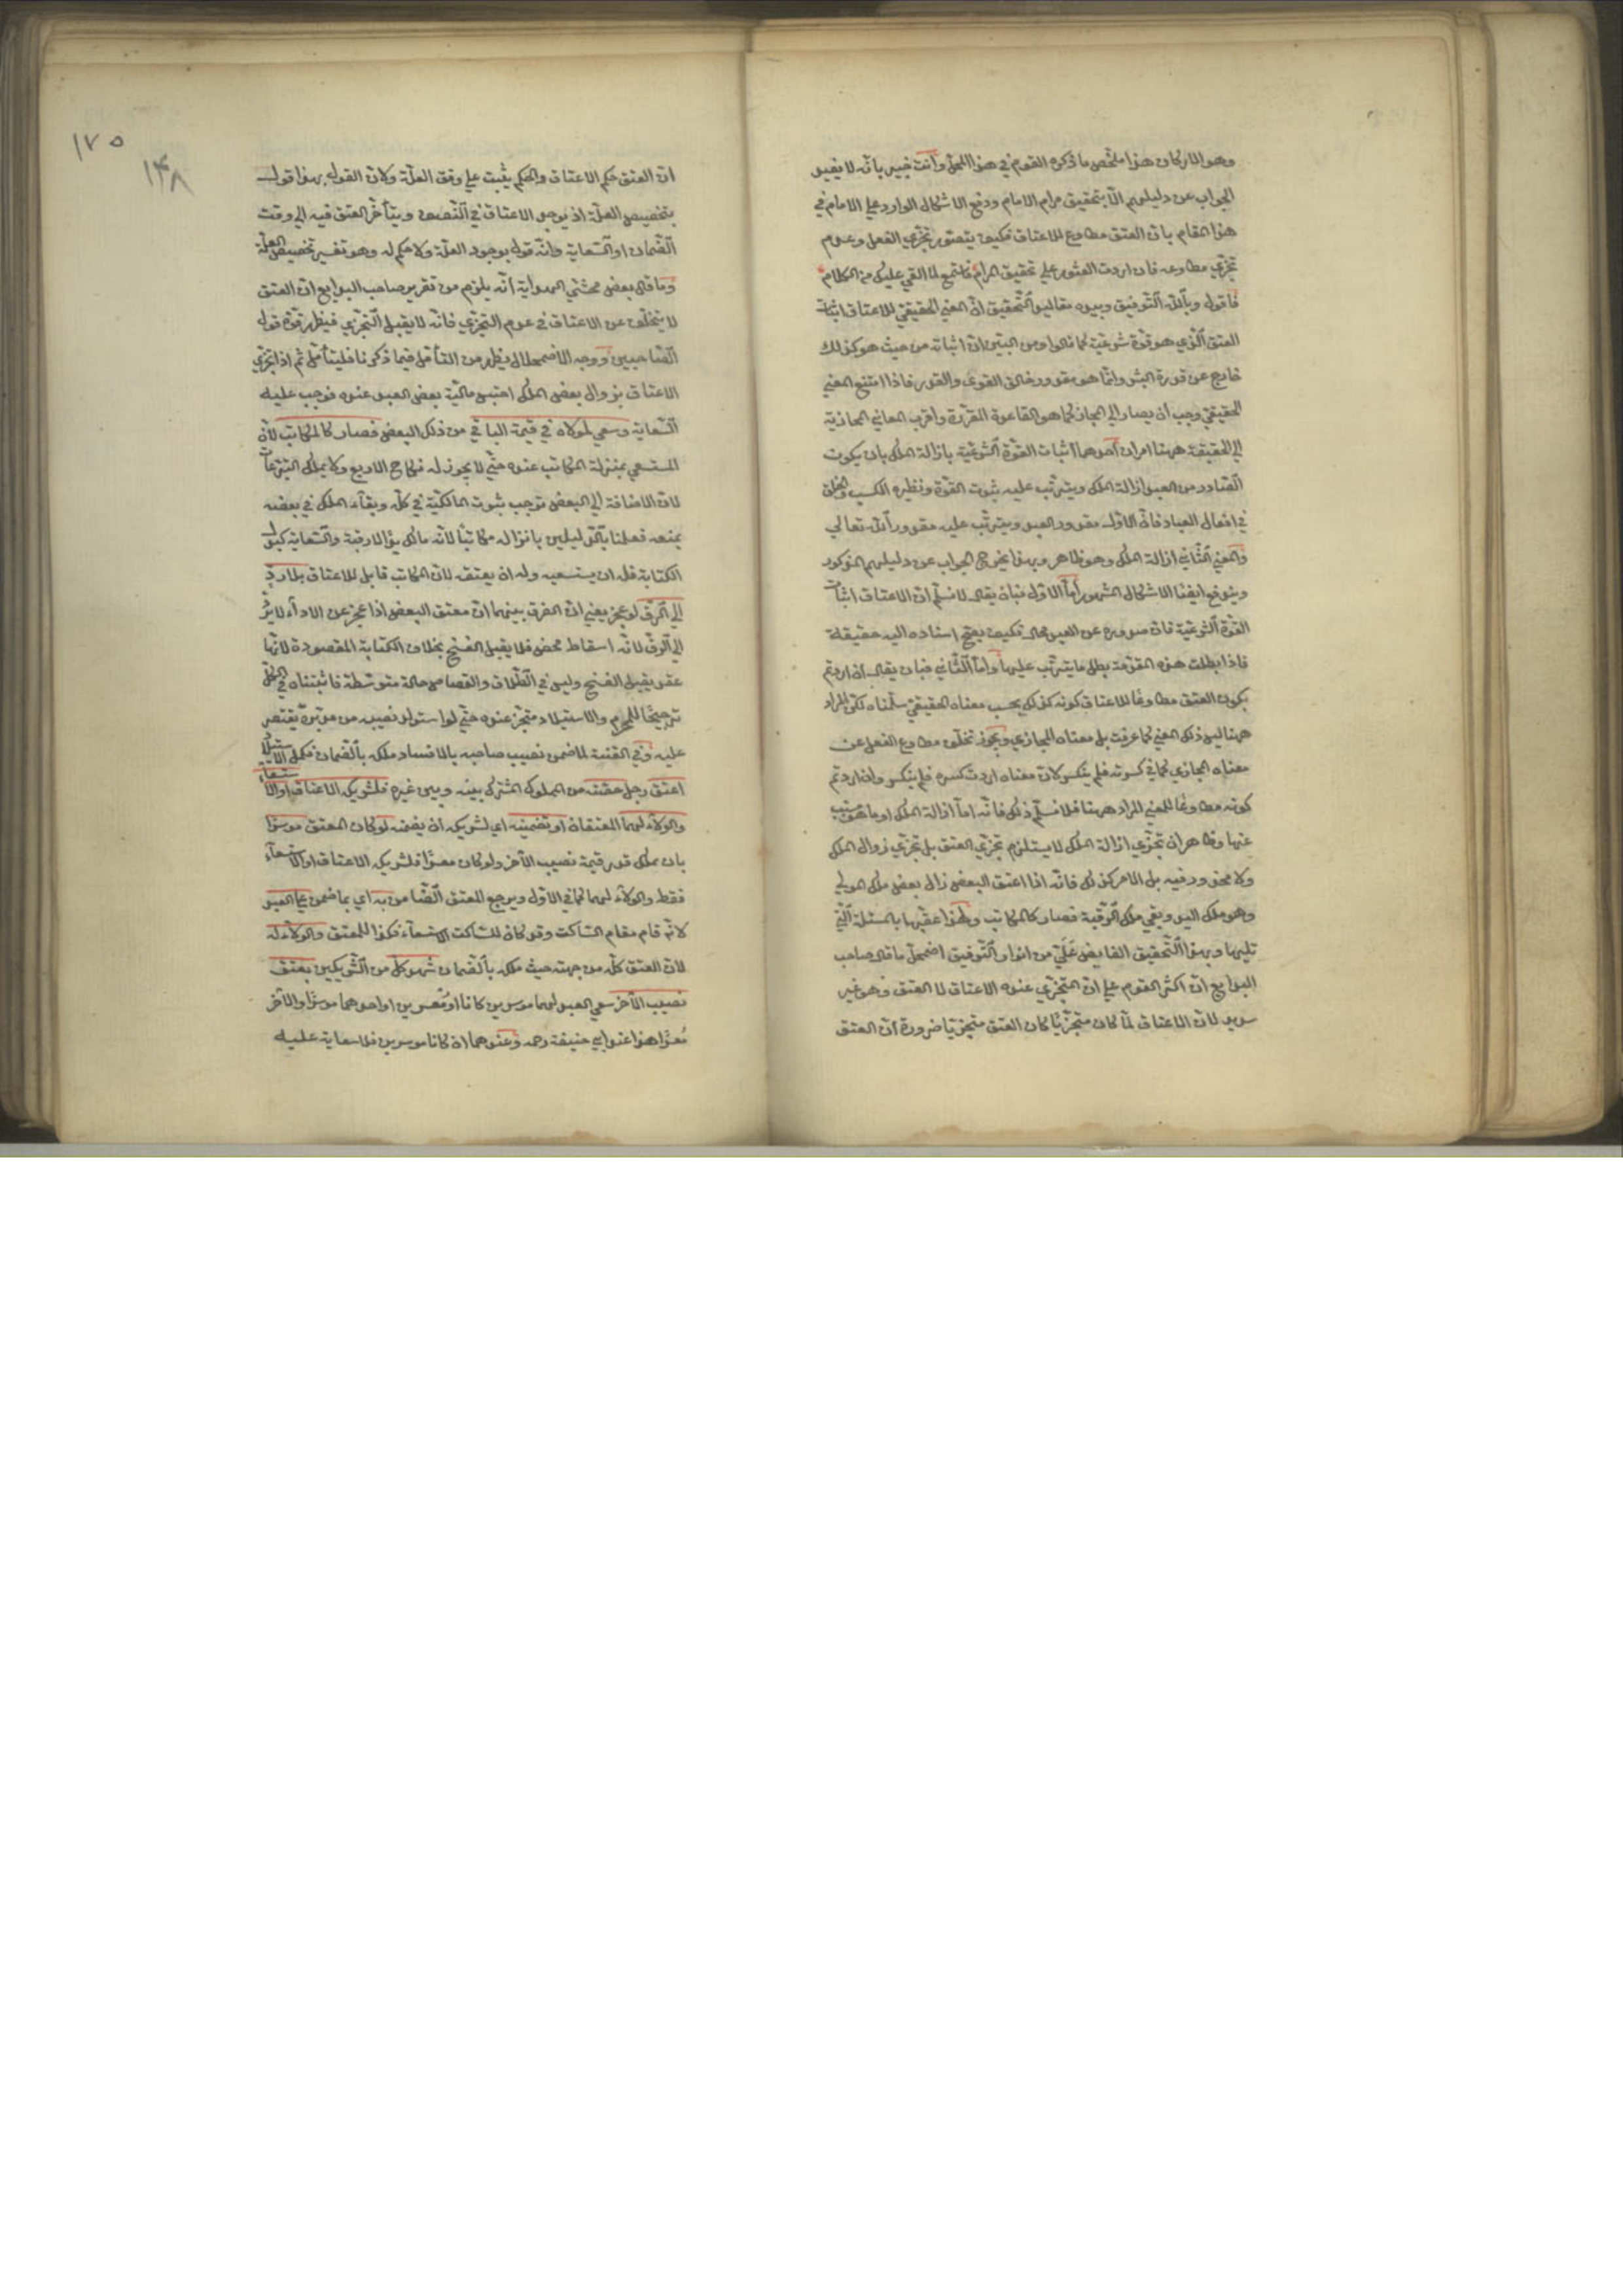 وهو المار كان هذا ملخص ما ذكره القوم في هذا المحل وانت خبير بانه لا يفيد
الجواب عن دليلهم الا بتحقيق مرام الامام ودفع الاشكال الوارد علي الامام في
هذا المقام بان العتق مطاوع للاعتاق فكيف يتصور تجزي الفعل وعدم
تجزي مطاوعه فان اردت العثور علي تحقيق المرام فاستمع لما القي عليك من الكلام
فاقول وبالله التوفيق وبيده مقاليد التحقيق ان المعني الحقيقي للاعتاق اثبات
العتق الذي هو قوة شرعية كما قالوا ومن البين ان اثباته من حيث هو كذلك
خارج عن قدرة البشر وانما هو مقدور خالق القوي والقدر فاذا امتنع المعني
الحقيقي وجب ان يصار الي المجاز كما هو القاعدة المقررة واقرب المعاني المجازية
الي الحقيقة ههنا امران احدهما اثبات القوة الشرعية بازالة الملك بان يكون
الصادر من العبد ازالة الملك ويترتب عليه ثبوت القوة ونظيره الكسب والخلق
في افعال العباد فان الاول مقدور العبد ويترتب عليه مقدور الله تعالي
والمعني الثاني ازالة الملك وهو ظاهر وبهذا يخرج الجواب عن دليلهم المذكور
ويندفع ايضا الاشكال المشهور اما الاول فبان يقال لا نسلم ان الاعتاق اثبات
القوة الشرعية فان صدوره عن العبد محال فكيف يصح اسناده اليه حقيقة
فاذا بطلت هذه المقدمة بطل ما يترتب عليها واما الثاني فبان يقال ان اردتم
بكون العتق مطاوعا للاعتاق كونه كذلك بحسب معناه الحقيقي سلمناه لكن المراد
ههنا ليس ذلك المعني كما عرفت بل معناه المجازي ويجوز تخلف مطاوع الفعل عن
معناه المجازي كما في كسرته فلم ينكسر لان معناه اردت كسره فلم ينكسر وان اردتم
كونه مطاوعا للمعني المراد ههنا فلا نسلم ذلك فانه اما ازالة الملك او ما هو سبب
عنها وظاهر ان تجزي ازالة الملك لا يستلزم تجزي العتق بل تجزي زوال الملك
ولا محذور فيه بل الامر كذلك فانه اذا اعتق البعض زال بعض ملك المولي
وهو ملك اليد وبقي ملك الرقبة فصار كالمكاتب ولهذا عقبها بالمسئلة التي
تليها وبهذا التحقيق الفايض علي من انوار التوفيق اضمحل ما قال صاحب
البدايع ان اكثر القوم علي ان التجزي عنده الاعتاق لا العتق وهو غير
سديد لان الاعتاق لما كان متجزيا كان العتق متجزيا ضرورة ان العتق
١٧٥
١٤٨
ان العتق حكم الاعتاق والحكم يثبت علي وفق العلة ولان القول بهذا قول
بتخصيص العلة اذ يوجد الاعتاق في النصف ويتأخر العتق فيه الي وقت
الضمان او السعاية وانه قول بوجود العلة ولا حكم له وهو تفسير تخصيص العلة
وما قال بعض محشي الهداية انه يلزم من تقرير صاحب البدايع ان العتق
لا يتخلف عن الاعتاق في عدم التجزي فانه لا يقبل التجزي فيظهر قوة قول
الصاحبين ووجه الاضمحلال يظهر من التأمل فيما ذكرنا فليتأمل ثم اذا تجزي
الاعتاق بزوال بعض الملك احتبس مالية بعض العبد عنده فوجب عليه
السعاية وسعي لمولاه في قيمة الباقي من ذلك البعض فصار كالمكاتب لان
المستسعي بمنزلة المكاتب عنده حتي لا يجوز له نكاح الاربع ولا يملك التبرعات
لان الاضافة الي البعض توجب ثبوت المالكية في كله وبقاء الملك في بعضه
يمنعه فعملنا بالدليلين بانزاله مكاتبا لانه مالك يدا لا رقبة والسعاية كبدل
الكتابة فله ان يستسعيه وله ان يعتقه لان المكاتب قابل للاعتاق بلا رد
الي الرق لو عجز يعني ان الفرق بينهما ان معتق البعض اذا عجز عن الاداء لا يرد
الي الرق لانه اسقاط محض فلا يقبل الفسخ بخلاف الكتابة المقصودة لانها
عقد يقبل الفسخ وليس في الطلاق والقصاص حالة متوسطة فاثبتناه في الكل
ترجيحا للمحرم والاستيلاد متجز عنده حتي لو استولد نصيبه من مدبرة يقتصر
عليه وفي القنة لما ضمن نصيب صاحبه بالافساد ملكه بالضمان فكمل الاستيلاد
اعتق رجل حصته من المملوك المشترك بينه وبين غيره فلشريكه الاعتاق او الاستسعاء
والولاء لهما المعتقان او تضمينه اي لشريكه ان يضمنه لو كان المعتق موسرا
بان يملك قدر قيمة نصيب الآخر ولو كان معسرا فلشريكه الاعتاق او الاستسعاء
فقط والولاء لهما كما في الاول ويرجع المعتق الضامن به اي بما ضمن علي العبد
لانه قام مقام الساكت وقد كان للساكت الاستسعاء فكذا للمعتق والولاء له
لان العتق كله من جهته حيث ملكه بالضمان شهد كل من الشريكين بعتق
نصيب الآخر سعي العبد لهما موسرين كانا او معسرين او احدهما موسرا والآخر
معسرا هذا عند ابي حنيفة رحمه وعندهما ان كانا موسرين فلا سعاية عليه